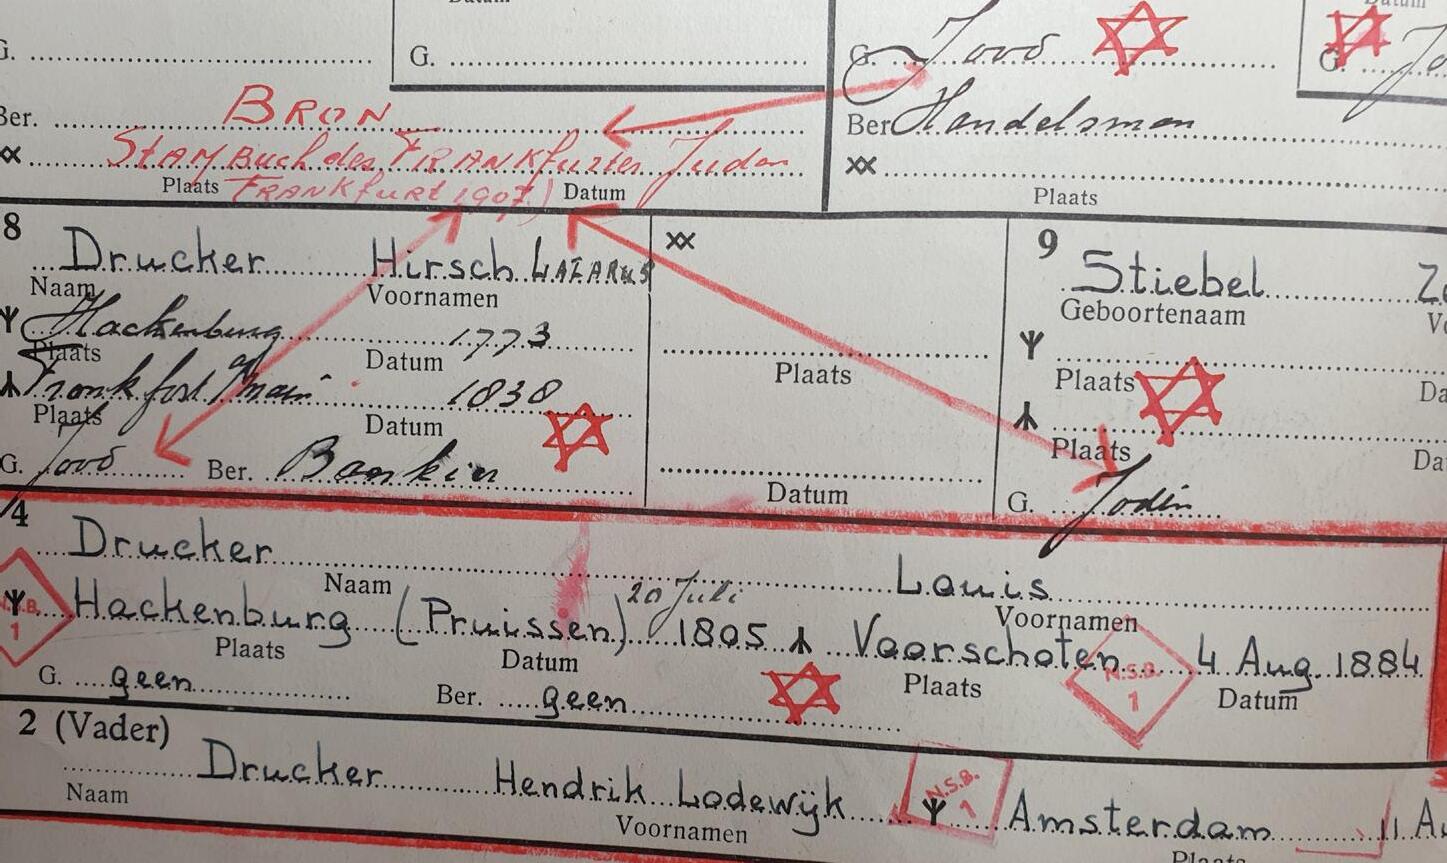 Datum
G.
G.
G. Jood
G. Jo
Ber. BRON
Ber Handelsman
StamBuch des FRANKfurter Juden
Plaats FRANKfurt 1907.) Datum
Plaats
8
Drucker Hirsch LAZARUS
Naam Voornamen
Hackenburg 1773
Plaats Datum
Frankfort a/main 1838
Plaats Datum
G. Jood Ber. Bankier
Plaats
Datum
9
Stiebel
Geboortenaam
Plaats
Plaats
G. Jodin
4
Drucker Louis
Naam Voornamen
N.S.B. 1
Hackenburg (Pruissen) 20 Juli 1805 Voorschoten 4 Aug. 1884
Plaats Datum Plaats Datum
N.S.B. 1
G. geen Ber. geen
2 (Vader)
Drucker Hendrik Lodewijk Amsterdam
Naam Voornamen Plaats
N.S.B. 1